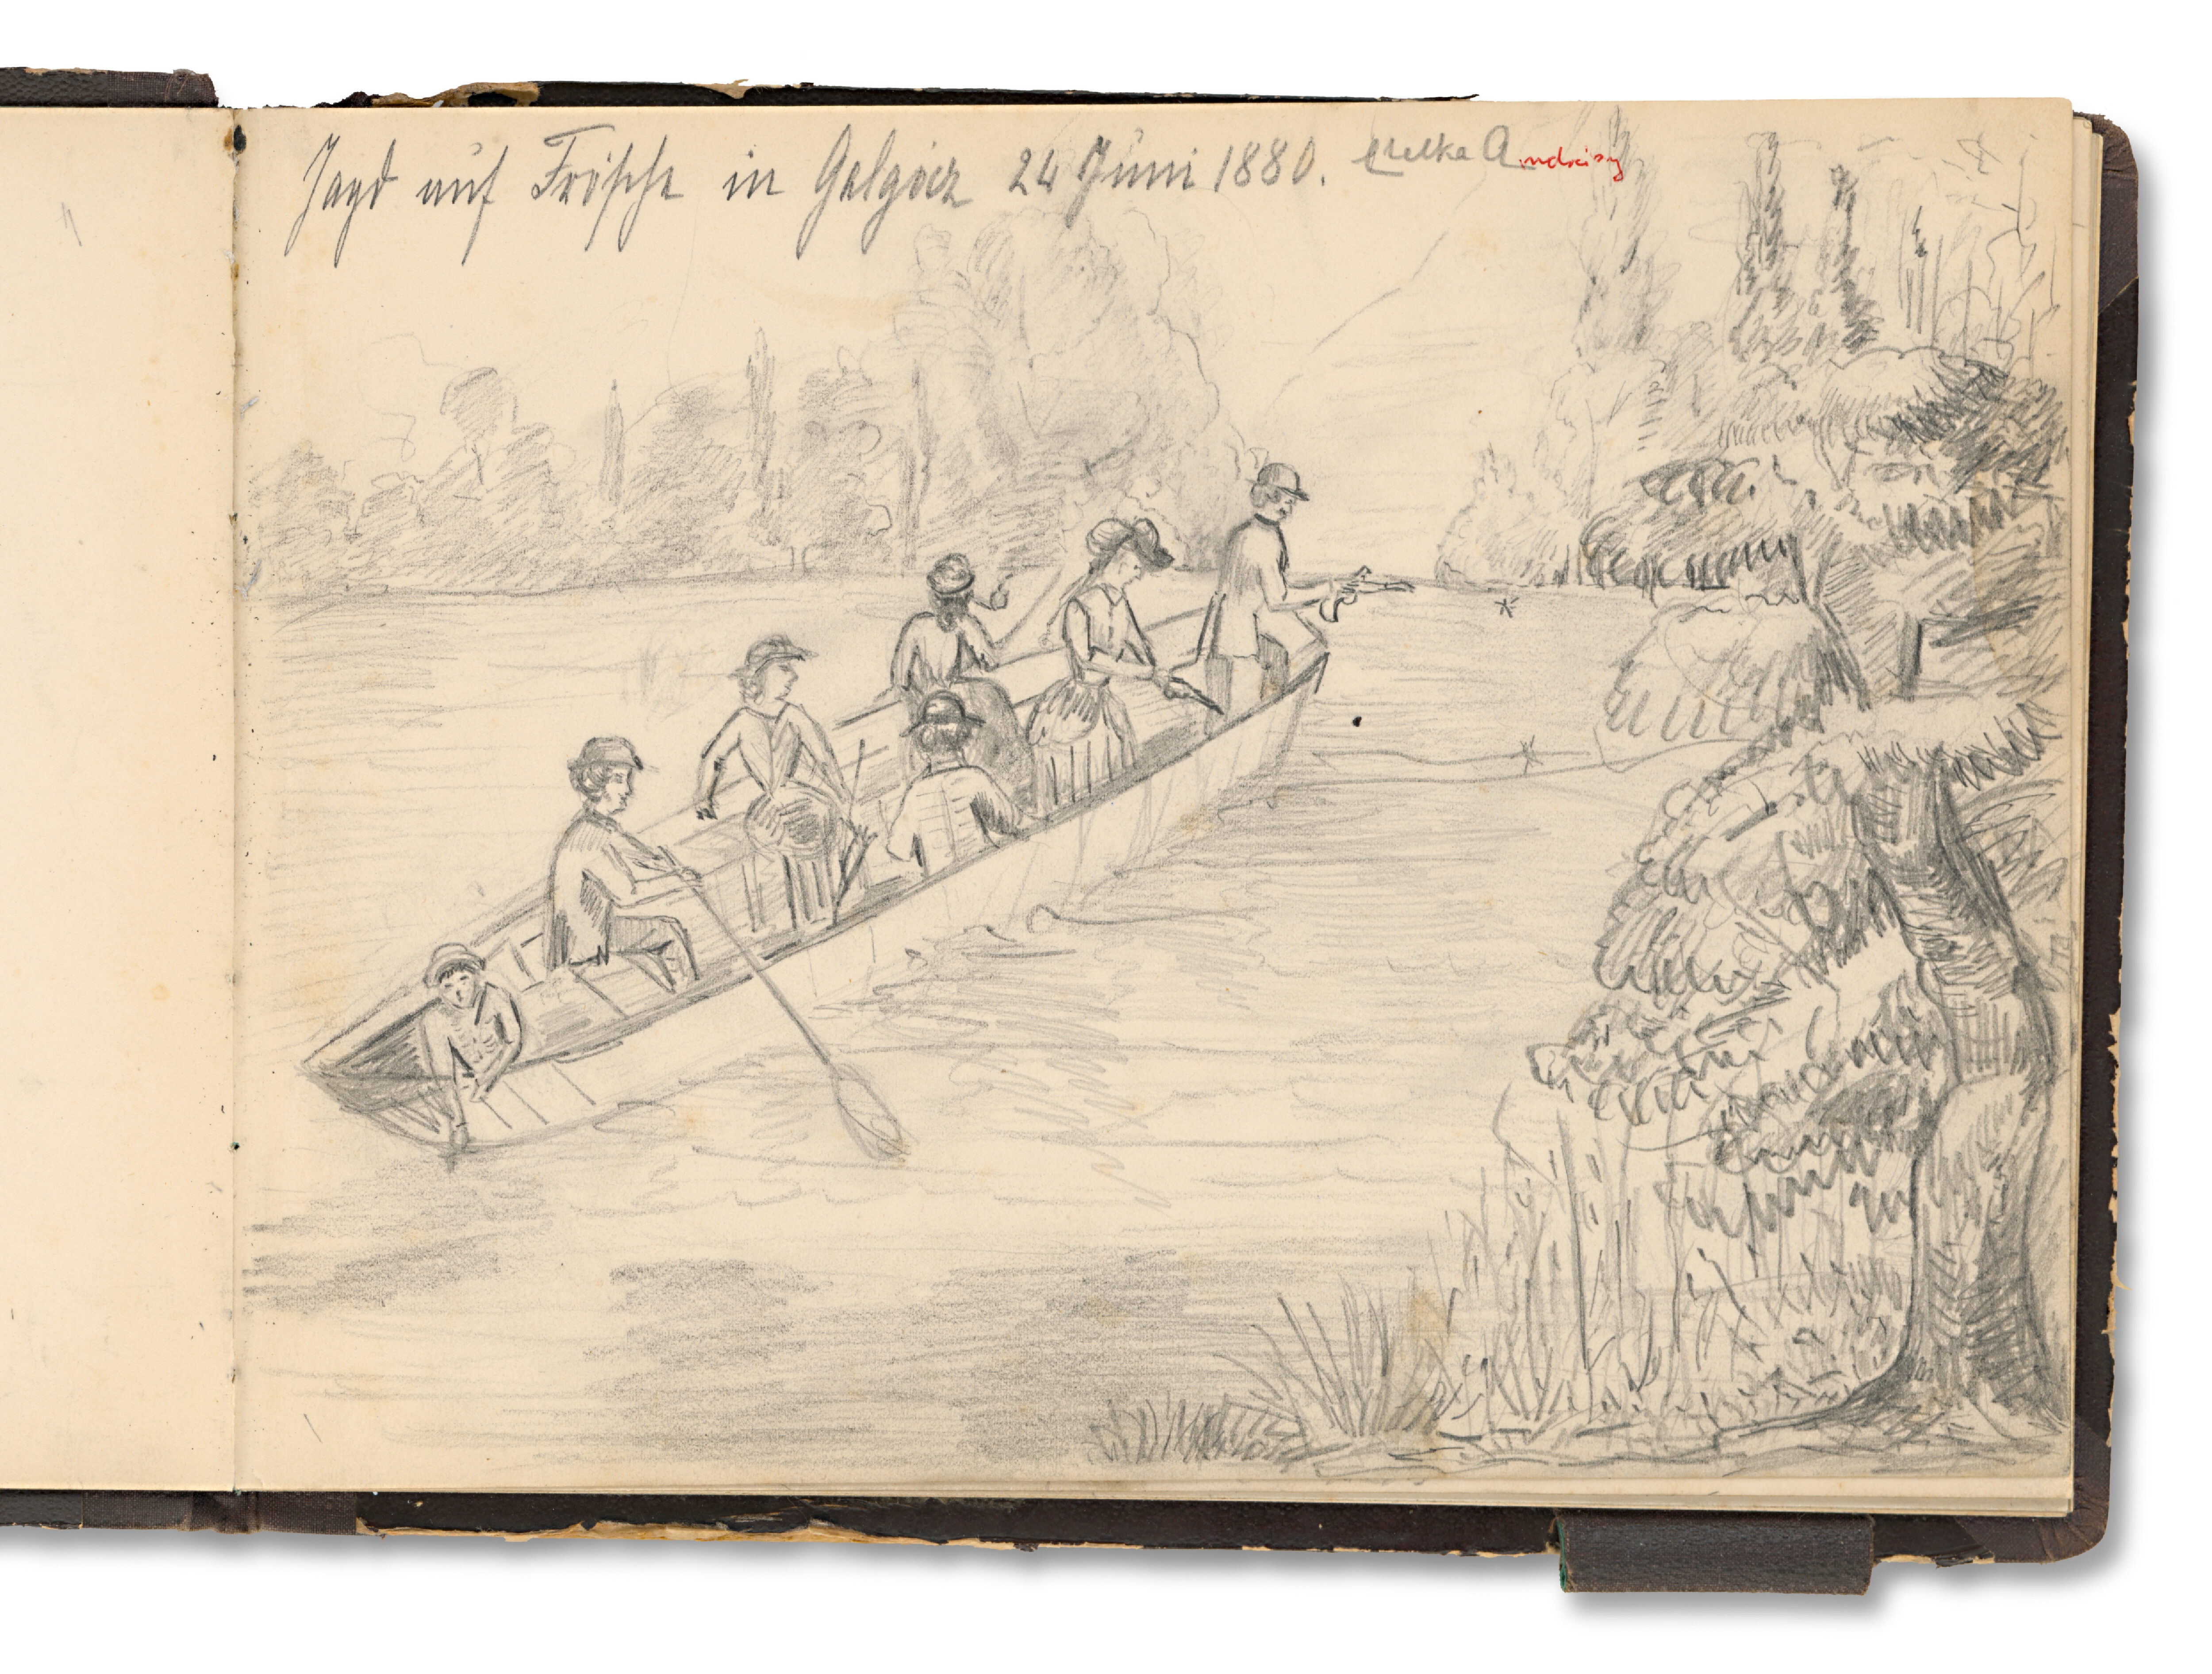 Jagd auf Frösche in Galgócz 24 Juni 1880. Etelka Andrássy